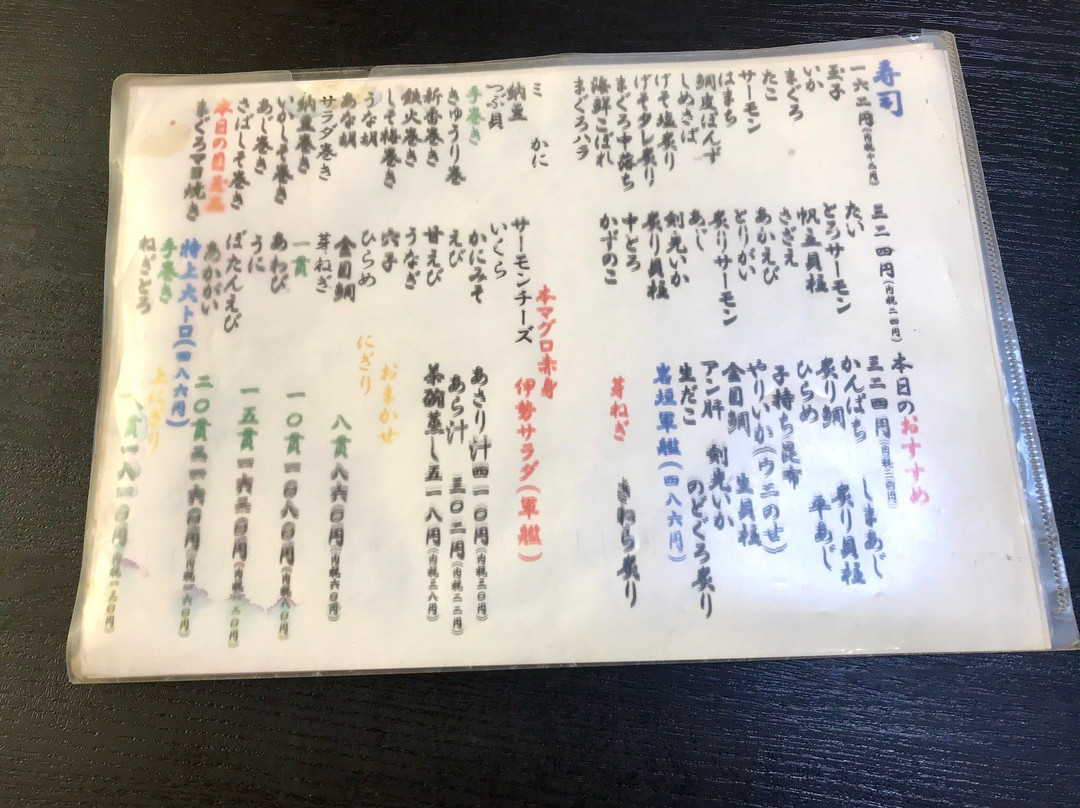 寿司
一六二円(内税十二円)
玉子
いか
まぐろ
たこ
サーモン
はまち
鯛皮ぽんず
しめさば
げそ塩炙り
げそタレ炙り
まぐろ中落ち
海鮮こぼれ
まぐろハラ
ミ かに
納豆
つぶ貝
手巻き
きゅうり巻
新香巻き
鉄火巻き
しそ梅巻き
うな胡
あな胡
サラダ巻き
納豆巻き
いかしそ巻き
あじ巻き
さばしそ巻き
本日の
まぐろマヨ焼き
三二四円(内税二四円)
たい
とろサーモン
帆立貝柱
さざえ
あかえび
とりがい
炙りサーモン
あじ
剣先いか
炙り貝柱
中とろ
かずのこ
サーモンチーズ
いくら
かにみそ
えび
甘えび
うなぎ
穴子
ひらめ
金目鯛
芽ねぎ
一貫
あわび
うに
ぼたんえび
あかがい
特上大トロ(四八六円)
手巻き
ねぎとろ
本日のおすすめ
三二四円(内税二四円)
かんぱち しまあじ
炙り鯛 炙り貝柱
ひらめ 平あじ
子持ち昆布
やりいか(ウニのせ)
金目鯛 生貝柱
アン肝 剣先いか
生だこ のどぐろ炙り
岩垣軍艦(四八六円)
芽ねぎ さわら炙り
本マグロ赤身
伊勢サラダ(軍艦)
あさり汁 四一〇円(内税三〇円)
あら汁 三〇二円(内税二二円)
茶碗蒸し 五一八円(内税三八円)
おまかせ
にぎり
八貫 八六〇円(内税六〇円)
一〇貫 一〇八〇円(内税八〇円)
一五貫
二〇貫
上にぎり